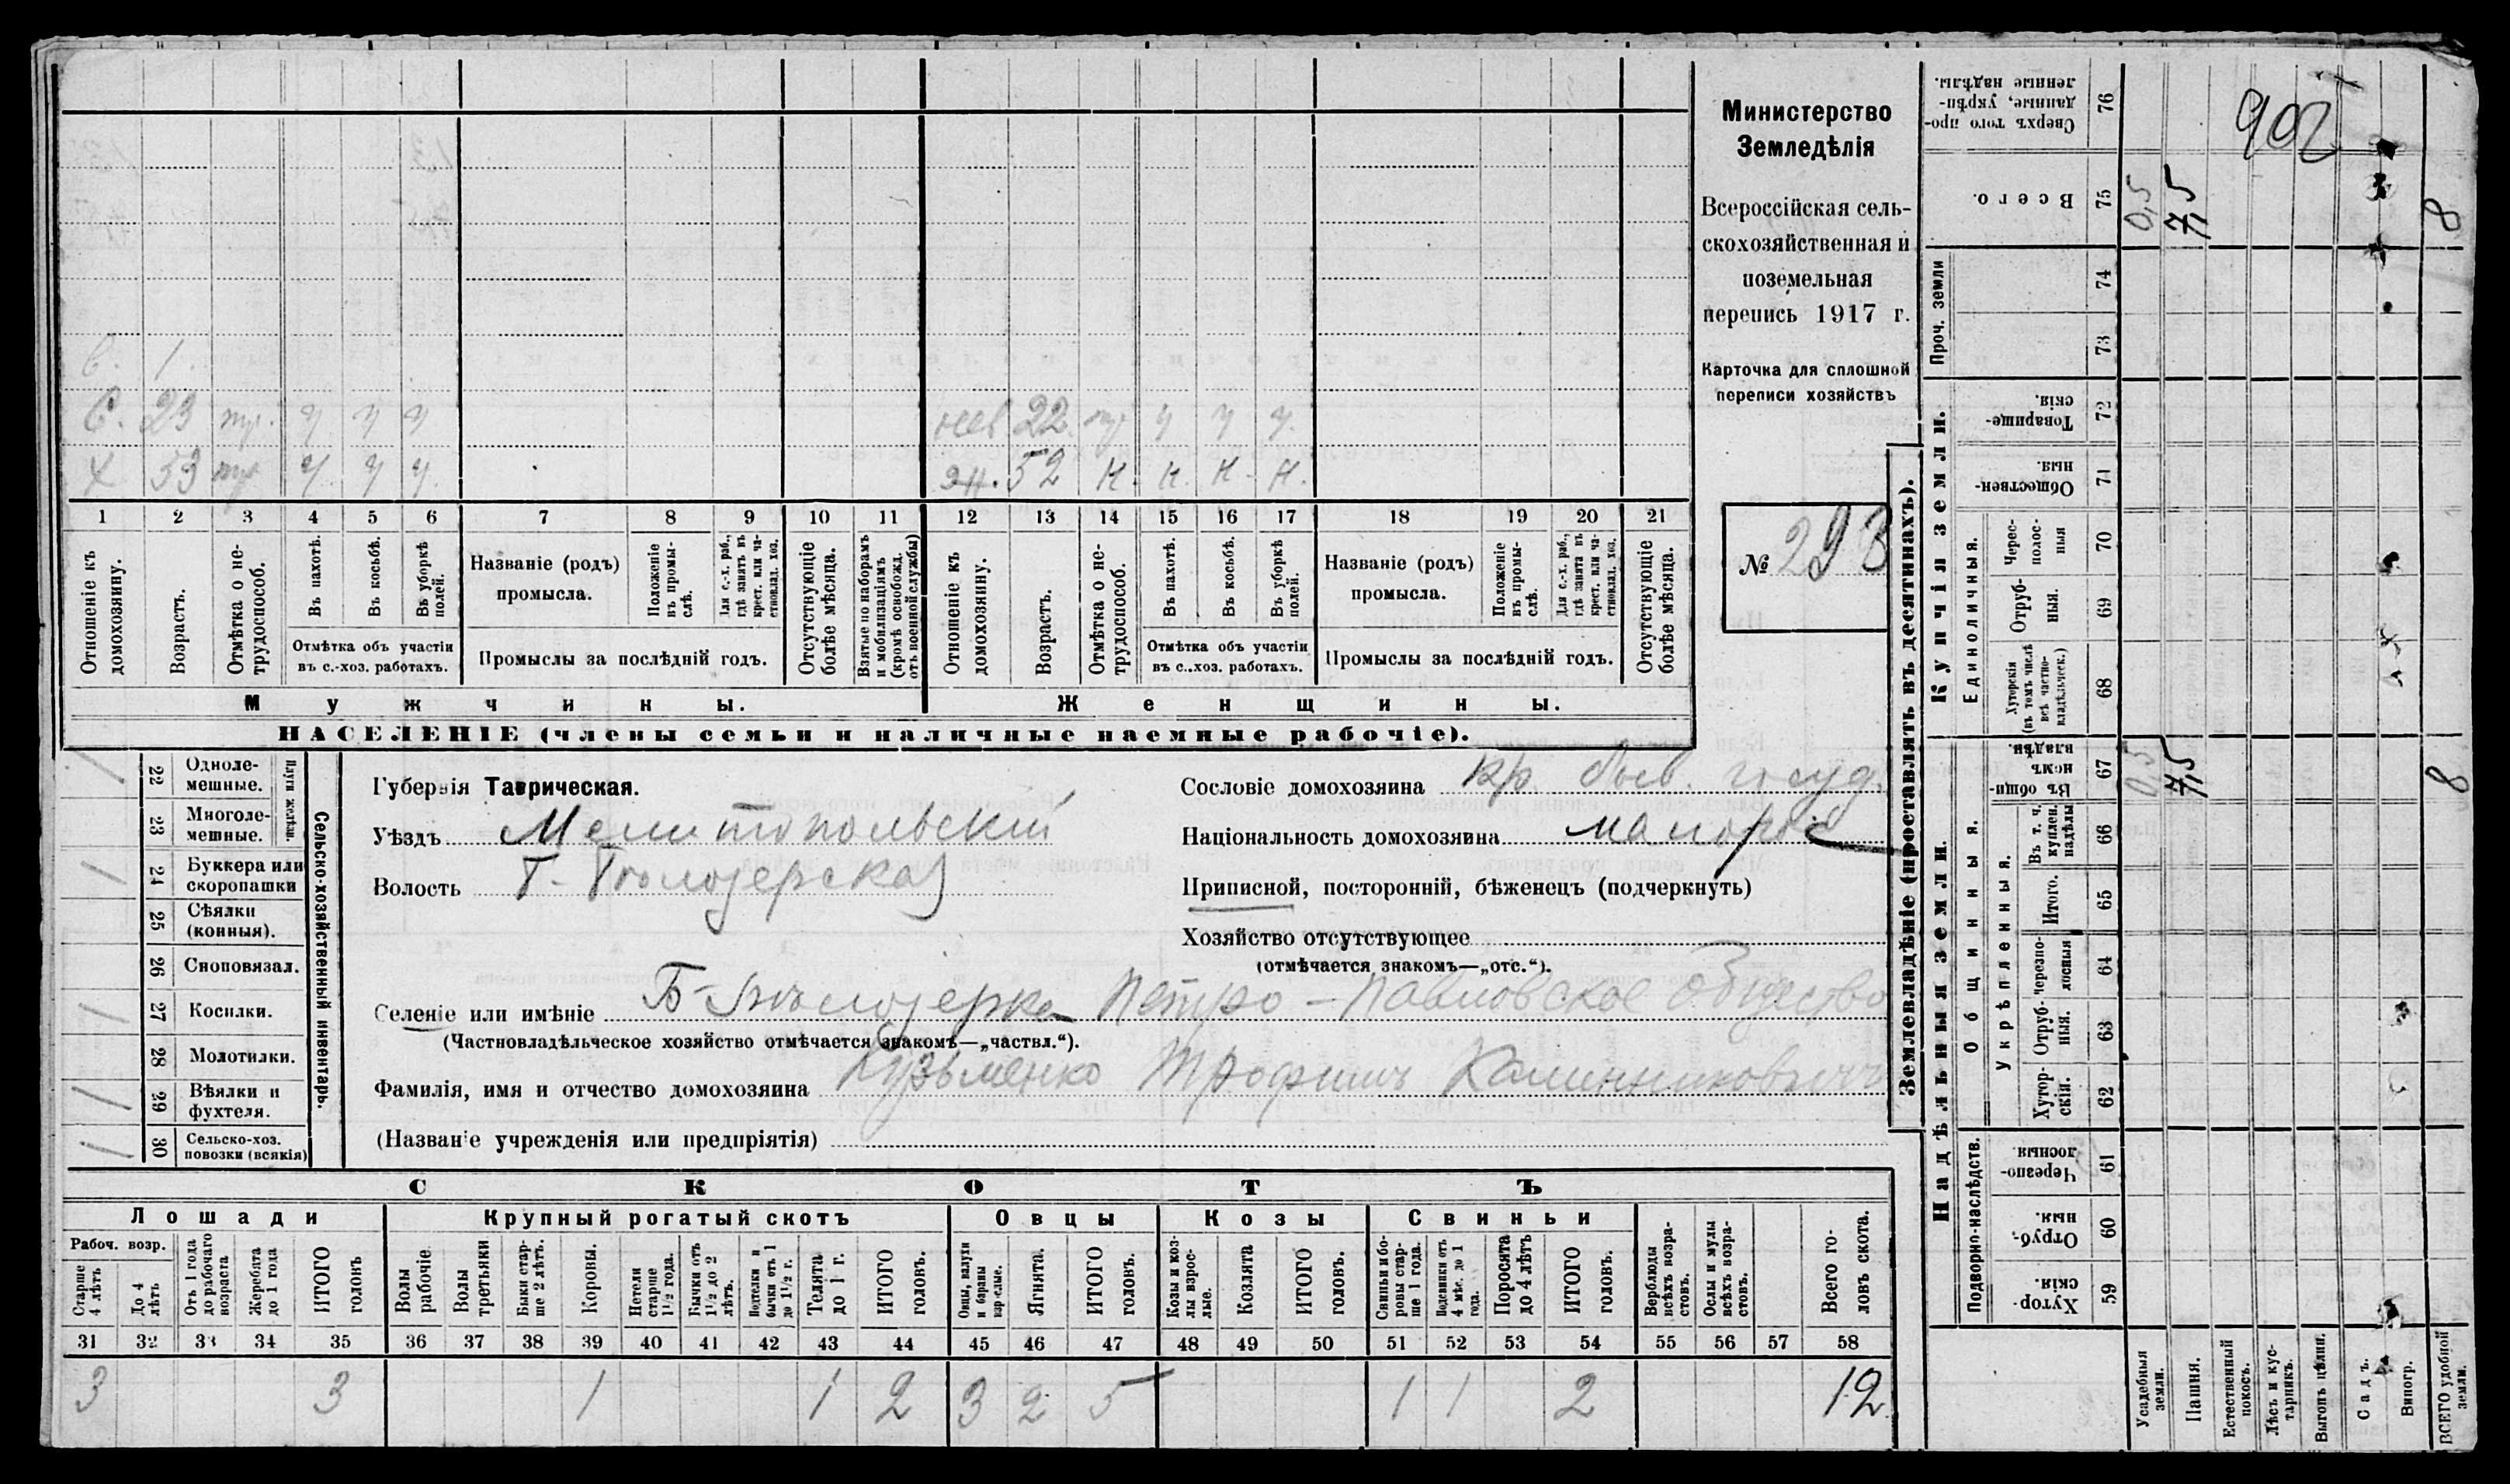 Министерство
Земледѣлія
Всероссійская сель-
скохозяйственная и
поземельная
перепись 1917 г.
Карточка для сплошной
переписи хозяйствъ
№ 293
в. 1
С. 23 тр. ч ч ч
нев. 22 тр. ч ч ч.
Х 53 тр ч ч ч.
эн. 52 н. н. н. н.
1 2 3 4 5 6 7 8 9 10 11 12 13 14 15 16 17 18 19 20 21
Отношеніе къ домохозяину.
Возрастъ.
Отмѣтка о не-трудоспособ.
Въ пахотѣ.
Въ косьбѣ.
Въ уборкѣ полей.
Отмѣтка объ участіи
въ с.-хоз. работахъ.
Названіе (родъ)
промысла.
Положеніе въ промы-слѣ.
Для с.-х. раб., гдѣ занятъ въ крест. или ча-стновлад. хоз.
Промыслы за послѣдній годъ.
Отсутствующіе болѣе мѣсяца.
Взятые по наборамъ и мобилизаціямъ (кромѣ освобожд. отъ военной службы)
Отношеніе къ домохозяину.
Возрастъ.
Отмѣтка о не-трудоспособ.
Въ пахотѣ.
Въ косьбѣ.
Въ уборкѣ полей.
Отмѣтка объ участіи
въ с..хоз. работахъ.
Названіе (родъ)
промысла.
Положеніе въ промы-слѣ.
Для с.-х. раб., гдѣ занята въ крест. или ча-стновлад. хоз.
Промыслы за послѣдній годъ.
Отсутствующіе болѣе мѣсяца.
Мужчины.
Женщины.
НАСЕЛЕНІЕ (члены семьи и наличные наемные рабочіе).
1 22 Одноле-мешные.
23 Многоле-мешные.
Плуги желѣзн.
1 24 Буккера или скоропашки
25 Сѣялки (конныя).
26 Сноповязал.
1 27 Косилки.
28 Молотилки.
1 29 Вѣялки и фухтеля.
1 30 Сельско-хоз. повозки (всякія)
Сельско-хозяйственный инвентарь.
Губернія Таврическая.
Уѣздъ Мелитопольскій
Волость Б-Бѣлозерская
Сословіе домохозяина кр. быв. госуд.
Національность домохозяина малорос
Приписной, посторонній, бѣженецъ (подчеркнуть)
Хозяйство отсутствующее
(отмѣчается знакомъ—„отс.“).
Селеніе или имѣніе Б-Бѣлозерка Петро-Павловское Общество
(Частновладѣльческое хозяйство отмѣчается знакомъ—„частвл.“).
Фамилія, имя и отчество домохозяина Кузьменко Трофимъ
(Названіе учрежденія или предпріятія)
СКОТЪ
Лошади
Крупный рогатый скотъ
Овцы
Козы
Свиньи
Рабоч. возр.
Старше 4 лѣтъ
До 4 лѣтъ
Отъ 1 года до рабочаго возраста
Жеребята до 1 года
ИТОГО головъ
Волы рабочіе
Волы третьяки
Быки стар-ше 2 лѣтъ.
Коровы.
Нетели старше 1½ года.
Бычки отъ 1½ до 2 лѣтъ.
Подтелки и бычки отъ 1 до 1½ г.
Телята до 1 г.
ИТОГО головъ.
Овцы, валухи и бараны взрослые.
Ягнята.
ИТОГО головъ.
Козы и коз-лы взрос-лые.
Козлята
ИТОГО головъ.
Свиньи и бо-ровы стар-ше 1 года.
Подсвинки отъ 4 мѣс. до 1 года.
Поросята до 4 лѣтъ
ИТОГО головъ.
Верблюды всѣхъ возра-стовъ.
Ослы и мулы всѣхъ возра-стовъ.
Всего го-ловъ скота.
31 32 33 34 35 36 37 38 39 40 41 42 43 44 45 46 47 48 49 50 51 52 53 54 55 56 57 58
3 3 1 1 2 3 2 5 1 1 2 12
Землевладѣніе (проставлять въ десятинахъ).
Сверхъ того про-данные, укрѣп-ленные надѣлы. 76
902
Всего. 75 0,5 7,5 8
Проч. земли
74
73
Купчія земли.
Товарище-скія. 72
Обществен-ныя. 71
Единоличныя.
Черес-полос-ныя 70
Отруб-ныя. 69
Хуторскія (въ томъ числѣ всѣ частно-владѣльческ.) 68
Надѣльныя земли.
Общинныя.
Въ общин-номъ владѣн. 67 0,5 7,5 8
Укрѣпленныя.
Въ т. ч. куплен. надѣлы 66
Итого. 65
Черезпо-лосныя 64
Отруб-ныя. 63
Хутор-скія. 62
Подворно-наслѣдств.
Черезпо-лосныя. 61
Отруб-ныя. 60
Хутор-скія. 59
Усадебныя земли.
Пашня.
Естественный покосъ.
Лѣсъ и кус-тарникъ.
Выгонъ цѣлин.
Садъ.
Виногр.
ВСЕГО удобной земли.